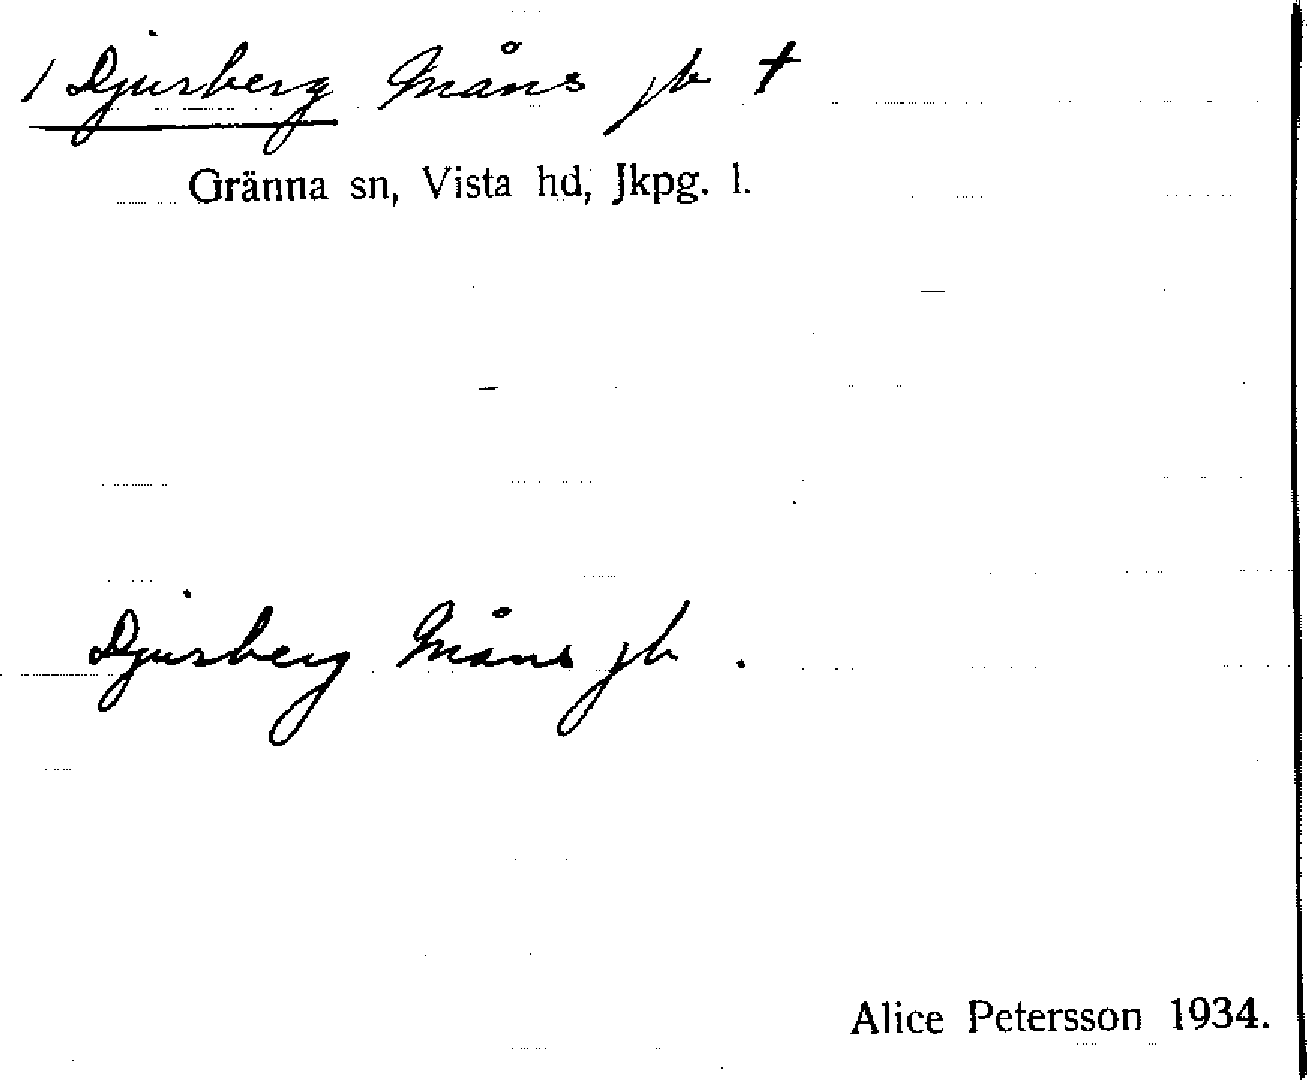 / Djursberg Måns jb †
Gränna sn, Vista hd, Jkpg. l.
Djursberg Måns jb .
Alice Petersson 1934.